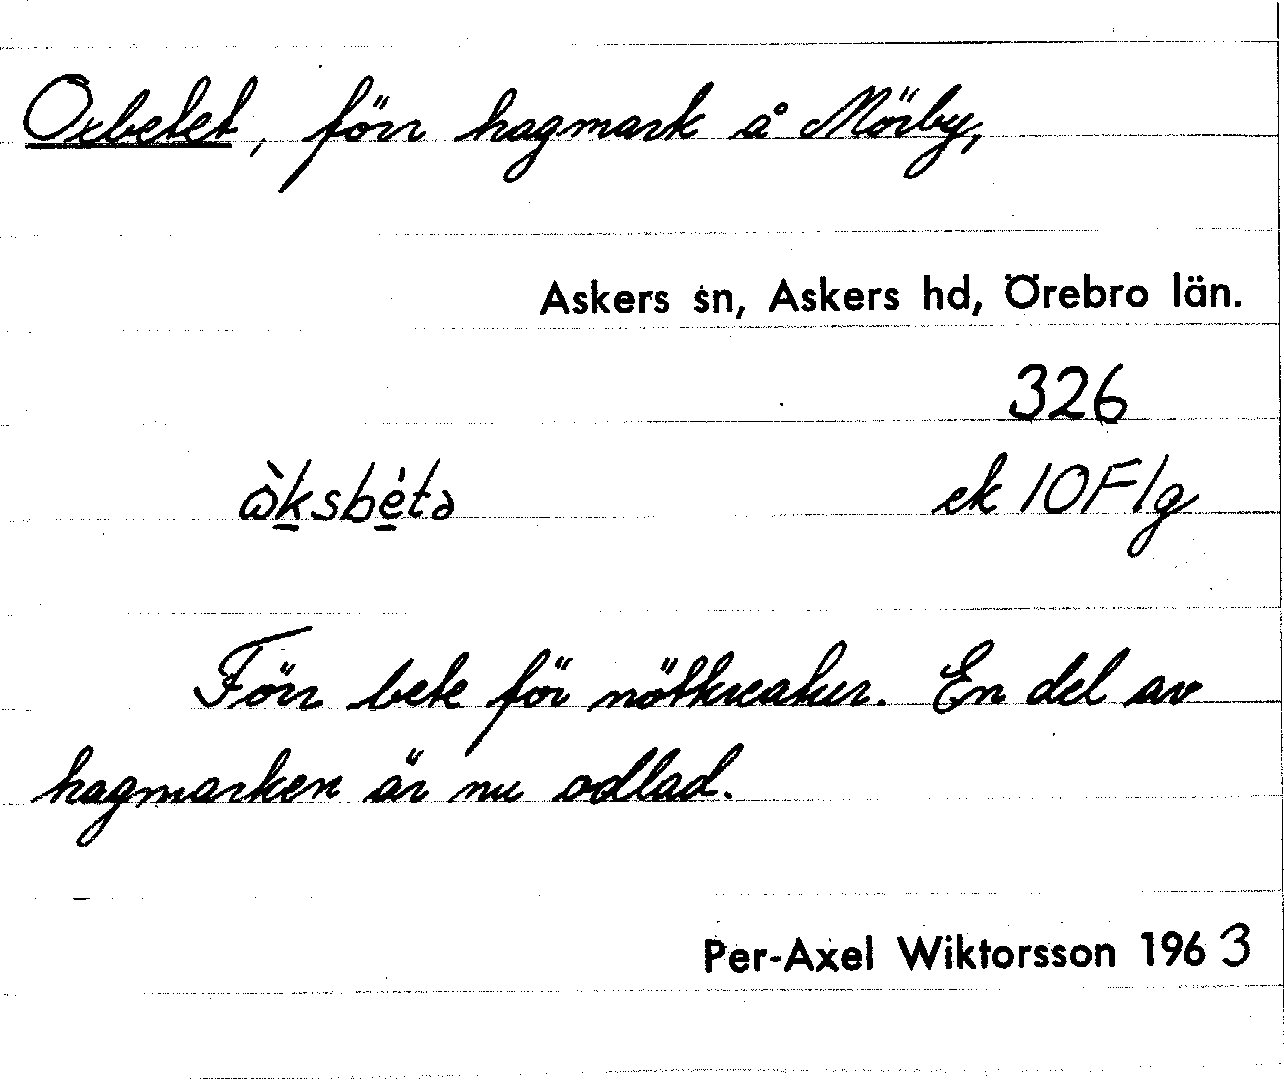 Oxbetet, förr hagmark å Mörby,
Askers sn, Askers hd, Örebro län.
326
ὼksbétə ek 10F1g
Förr bete för nötkreatur. En del av
hagmarken är nu odlad.
Per-Axel Wiktorsson 1963